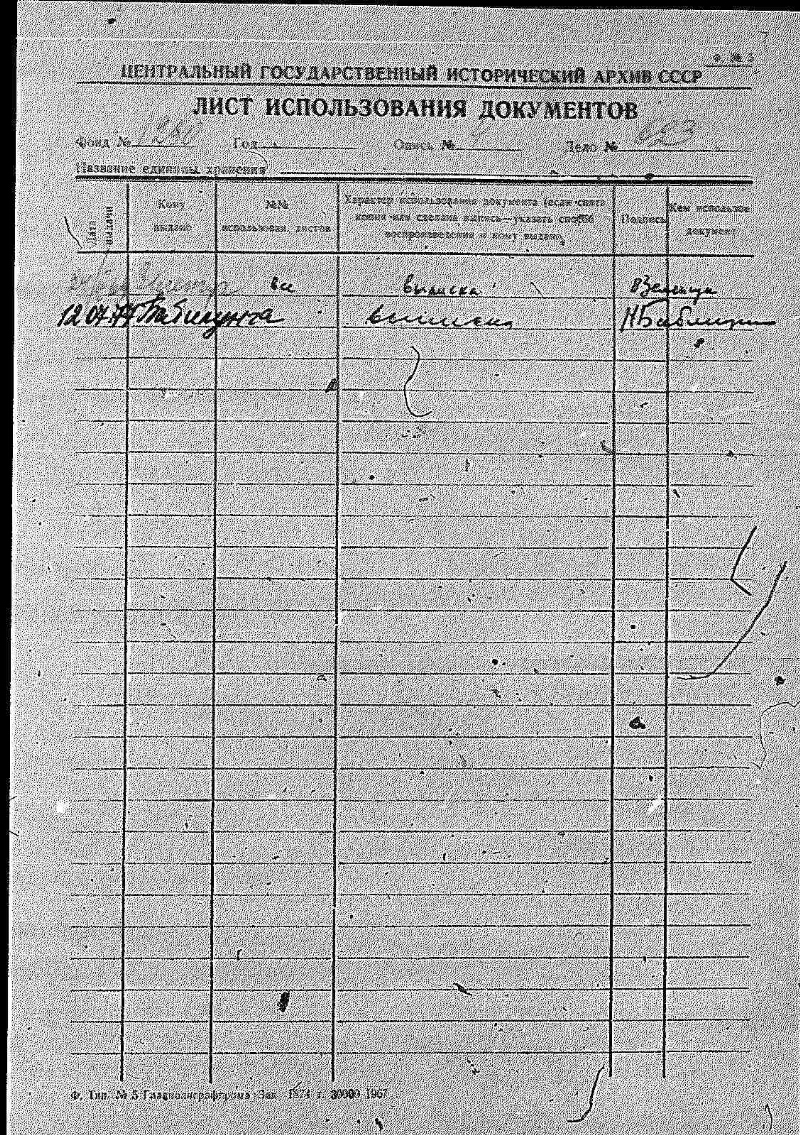 Ф. № 5
ЦЕНТРАЛЬНЫЙ ГОСУДАРСТВЕННЫЙ ИСТОРИЧЕСКИЙ АРХИВ СССР
ЛИСТ ИСПОЛЬЗОВАНИЯ ДОКУМЕНТОВ
Фонд № 1280 Год Опись № Дело № 823
Название единицы хранения
Дата выдачи
Кому выдано
№№ использован. листов
Характер использования документа (если снята
копия или сделана выпись—указать способ
воспроизведения и кому выдана)
Подпись
Кем использов. документ
все выписка
12.04.77 выписки
Ф. Тип. № 5 Главполиграфпрома Зак. 1874 г. 30000 1967